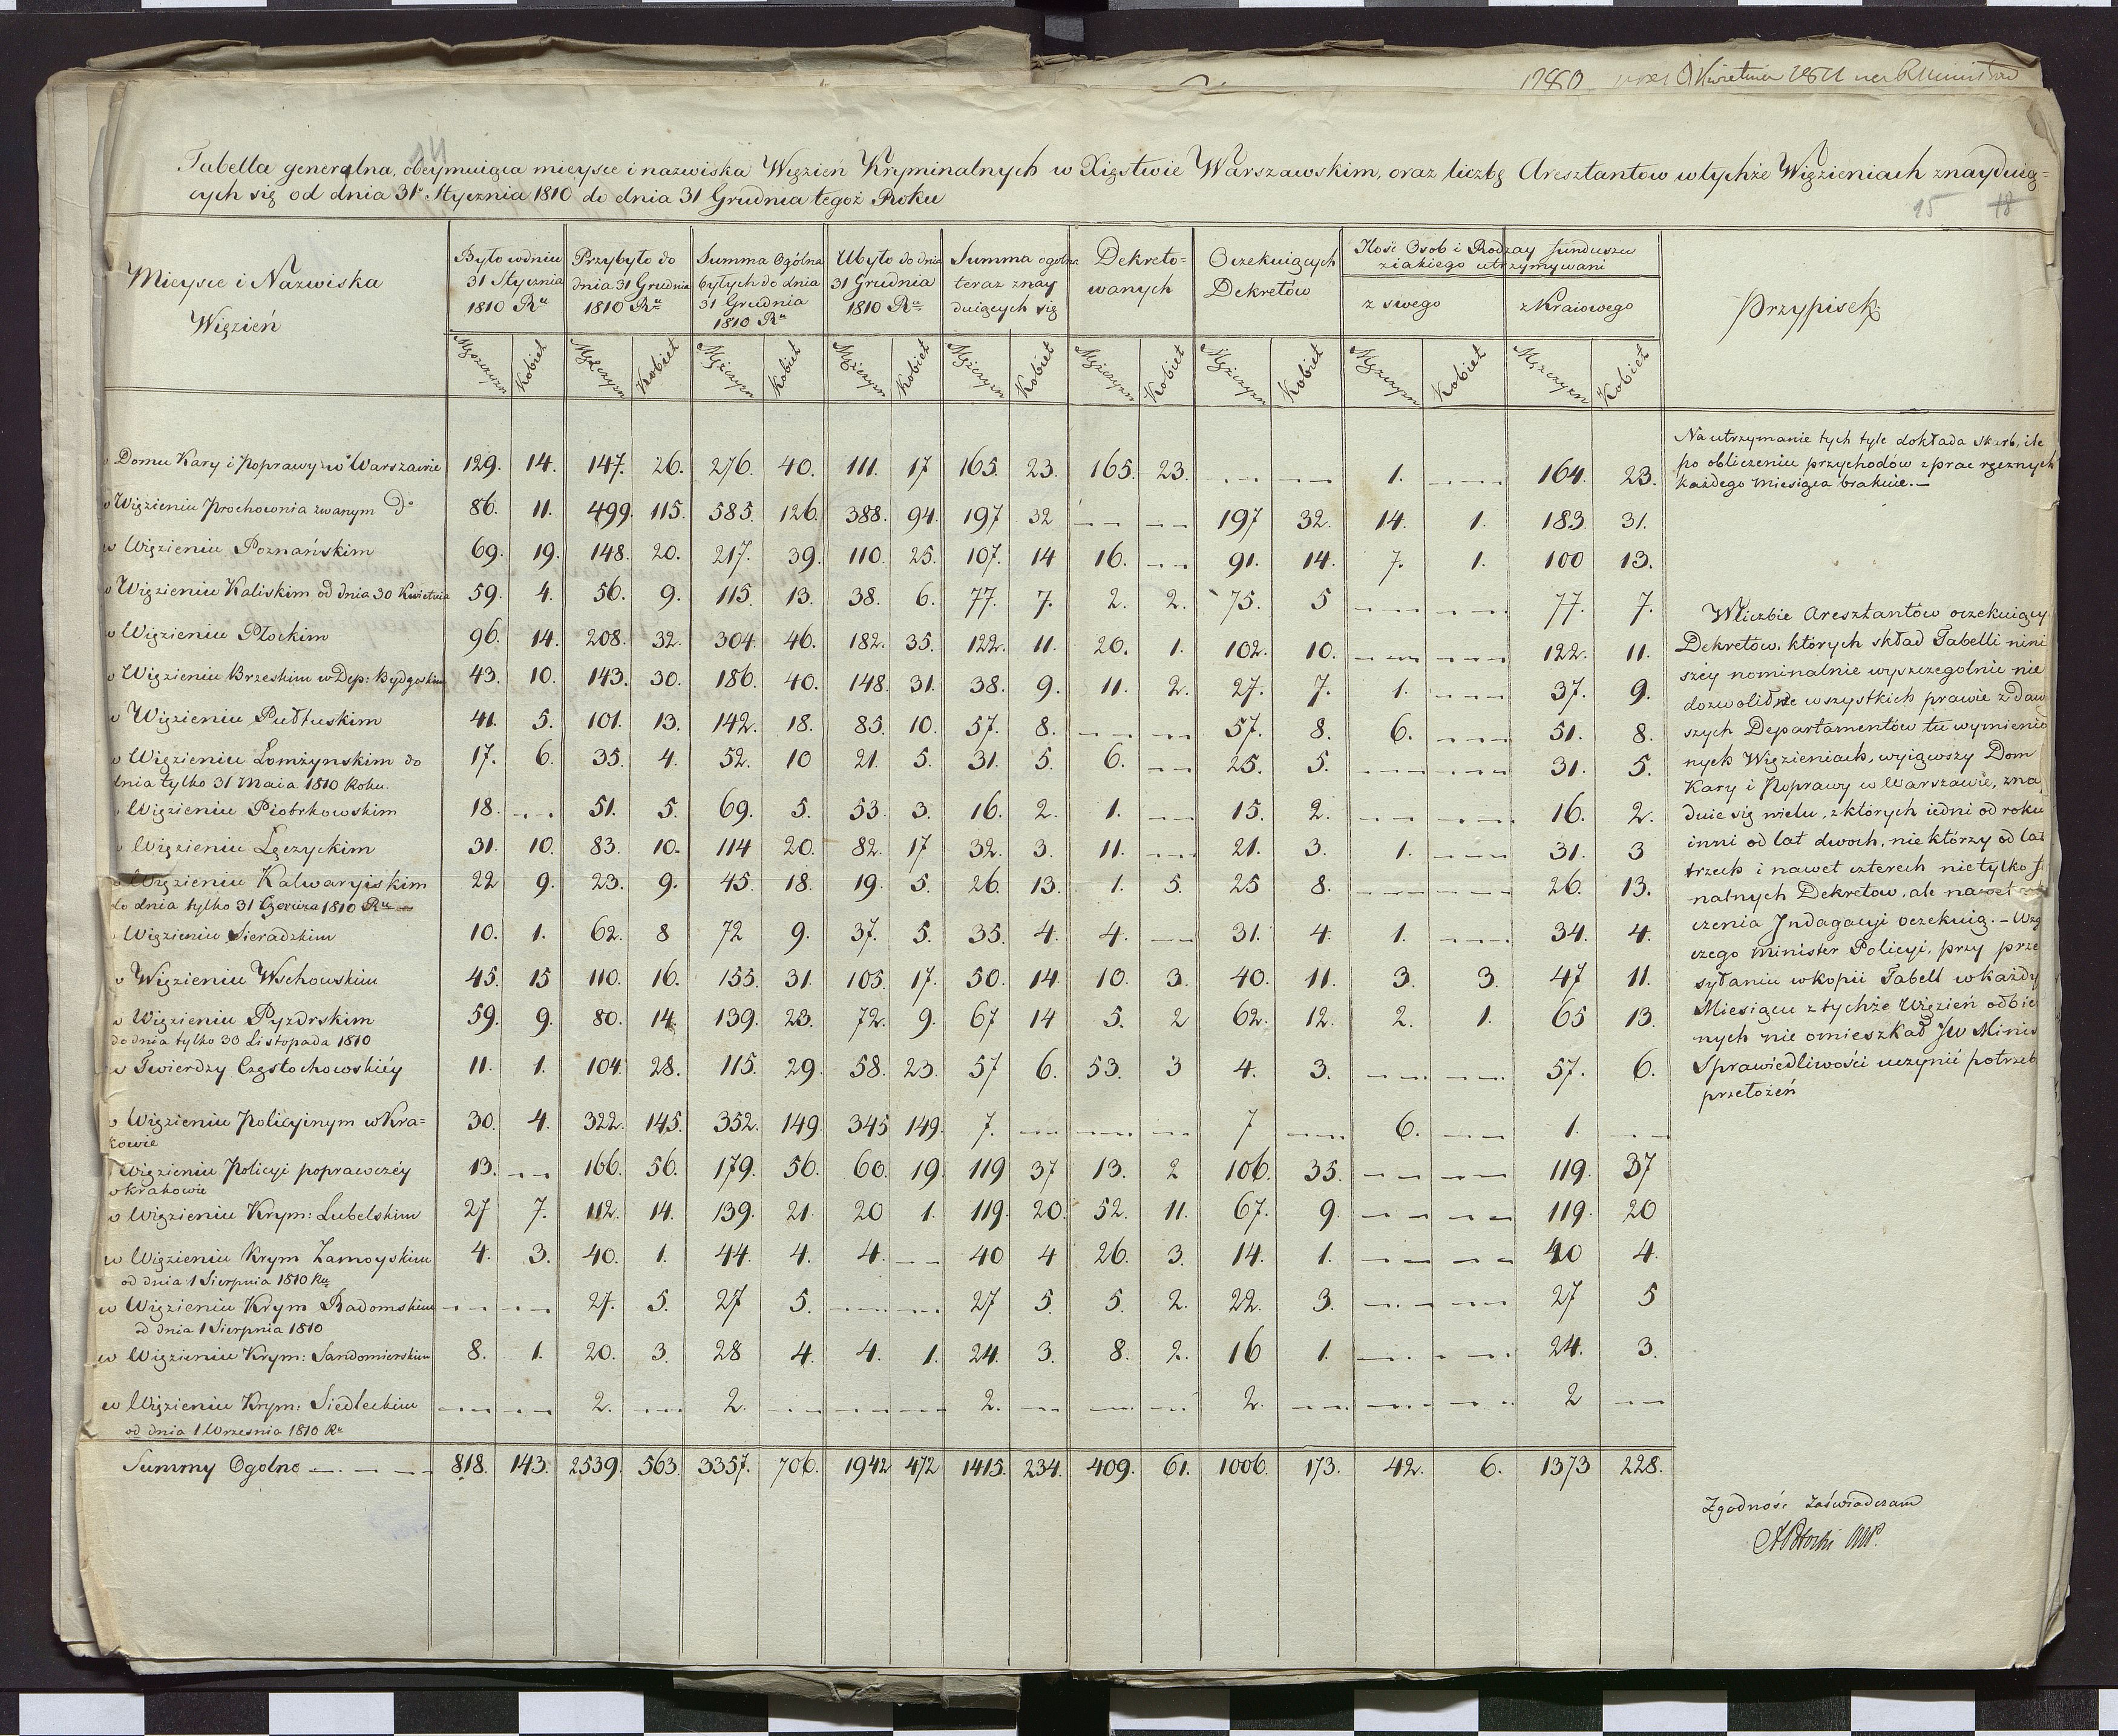 1280
Kwietnia 1811
Tabella generalna, obeymuiąca mieysce i nazwiska Więzień Kryminalnych w Xięstwie Warszawskim, oraz liczbę Aresztantow w tychże Więzieniach znayduią=
cych się od dnia 31º Stycznia 1810 do dnia 31 Grudnia tegoż Roku
15 18
Mieysce i Nazwiska Więzień | Było w dniu 31 Stycznia 1810 Ru | Przybyło do dnia 31 Grudnia 1810 Ru | Summa Ogólna byłych do dnia 31 Grudnia 1810 Ru | Ubyło do dnia 31 Grudnia 1810 Ru | Summa ogolna teraz znayduiących się | Dekreto=wanych | Oczekuiących Dekretów | Ilość Osob i Rodzay funduszu z iakiego utrzymywani | z swego | z Kraiowego | Przypisek
Mężczyzn Kobiet Mężczyzn Kobiet Mężczyzn Kobiet Mężczyzn Kobiet Mężczyzn Kobiet Mężczyzn Kobiet Mężczyzn Kobiet Mężczyzn Kobiet Mężczyzn Kobiet
w Domu Kary i Poprawy w Warszawie 129. 14. 147. 26. 276. 40. 111. 17 165. 23. 165. 23. ---- ---- 1. ---- 164. 23.
w Więzieniu Prochownia zwanym do 86. 11. 499. 115. 585. 126. 388. 94. 197 32 ---- ---- 197 32. 14. 1. 183. 31.
w Więzieniu Poznańskim 69. 19. 148. 20. 217. 39. 110. 25. 107. 14 16. ---- 91. 14. 7. 1. 100 13.
w Więzieniu Kaliskim od dnia 30 Kwietnia 59. 4. 56. 9. 115. 13. 38. 6. 77. 7. 2. 2. 75. 5 ---- ---- 77. 7.
w Więzieniu Płockim 96. 14. 208. 32. 304. 46. 182. 35. 122. 11. 20. 1. 102. 10. ---- ---- 122. 11.
w Więzieniu Brzeskim w Dep: Bydgoskim 43. 10. 143. 30. 186. 40. 148. 31. 38. 9. 11. 2. 27. 7. 1. ---- 37. 9.
w Więzieniu Pułtuskim 41. 5. 101. 13. 142. 18. 85. 10. 57. 8. ---- ---- 57. 8. 6. ---- 51. 8.
w Więzieniu Lomżynskim do 17. 6. 35. 4. 52. 10 21. 5. 31. 5. 6. ---- 25. 5. ---- ---- 31. 5.
dnia tylko 31 Maia 1810 Roku.
w Więzieniu Piotrkowskim 18. ---- 51. 5. 69. 5. 53. 3. 16. 2. 1. ---- 15. 2. ---- ---- 16. 2.
w Więzieniu Lęczyckim 31. 10. 83. 10. 114 20. 82. 17 32. 3. 11. ---- 21. 3. 1. ---- 31. 3
w Więzieniu Kalwaryiskim 22 9. 23. 9. 45. 18. 19. 5. 26. 13. 1. 5. 25 8. ---- ---- 26. 13.
do dnia tylko 31 Czerwca 1810 Ru
w Więzieniu Sieradzkim 10. 1. 62. 8 72 9. 37. 5. 35. 4. 4. ---- 31. 4. 1. ---- 34. 4.
w Więzieniu Wschowskim 45. 15 110. 16. 155. 31. 105. 17. 50. 14. 10. 3. 40. 11. 3. 3. 47 11.
w Więzieniu Pyzdrskim 59. 9. 80. 14. 139. 23. 72. 9. 67 14 5. 2 62. 12. 2. 1. 65 13.
do dnia tylko 30 Listopada 1810
w Twierdzy Częstochowskiéy 11. 1. 104. 28. 115. 29. 58. 23. 57 6. 53. 3 4. 3. ---- ---- 57. 6.
w Więzieniu Policyinym w Kra= 30. 4. 322. 145. 352. 149. 345 149. 7. ---- ---- ---- 7 ---- 6. ---- 1. ----
kowie
w Więzieniu Policyi poprawczéy 13. ---- 166. 56. 179. 56. 60. 19. 119 37 13. 2 106. 35. ---- ---- 119. 37
w Krakowie
w Więzieniu Krym: Lubelskim 27 7. 112. 14. 139. 21. 20 1. 119. 20. 52. 11. 67. 9. ---- ---- 119. 20
w Więzieniu Krym Zamoyskim 4. 3. 40. 1. 44. 4. 4. ---- 40 4 26. 3. 14. 1. ---- ---- 40 4.
od dnia 1 Sierpnia 1810 Ru
w Więzieniu Krym Radomskim ---- ---- 27. 5. 27 5. ---- ---- 27 5. 5. 2. 22. 3. ---- ---- 27 5
od dnia 1 Sierpnia 1810
w Więzieniu Krym: Sandomierskim 8. 1. 20. 3. 28 4. 4. 1. 24. 3. 8. 2. 16 1. ---- ---- 24. 3.
w Więzieniu Krym: Siedleckim ---- ---- 2. ---- 2. ---- ---- ---- 2. ---- ---- ---- 2. ---- ---- ---- 2 ----
od dnia 1 Września 1810 Ru
Summy Ogolne 818. 143. 2539. 563 3357. 706. 1942 472 1415. 234. 409. 61. 1006. 173. 42. 6. 1373 228.
Na utrzymanie tych tyle dokłada skarb, ile
po obliczeniu przychodów z prac ręcznych
każdego miesiąca brakuie.—
W liczbie Aresztantów oczekuiący
Dekretów, których skład Tabelli nini
széy nominalnie wyszczegolnić nie
dozwolił, że wszystkich prawie z daw
szych Departamentów tu wymienio
nych Więzieniach, wyiąwszy Dom
Kary i Poprawy w Warszawie, znay
duie się wielu, z których iedni od roku
inni od lat dwoch, niektórzy od lat
trzech i nawet czterech nie tylko fi
nalnych Dekretow, ale nawet
czenia Indagacyi oczekuią. — Wzg
czego Minister Policyi, przy prze
syłaniu w kopii Tabell w każdy
Miesiącu z tychże Więzień odbie
nych nie omieszkał JW Minis
Sprawiedliwości uczynić potrzeb
przełożeń
Zgodność Zaświadczam
APotocki